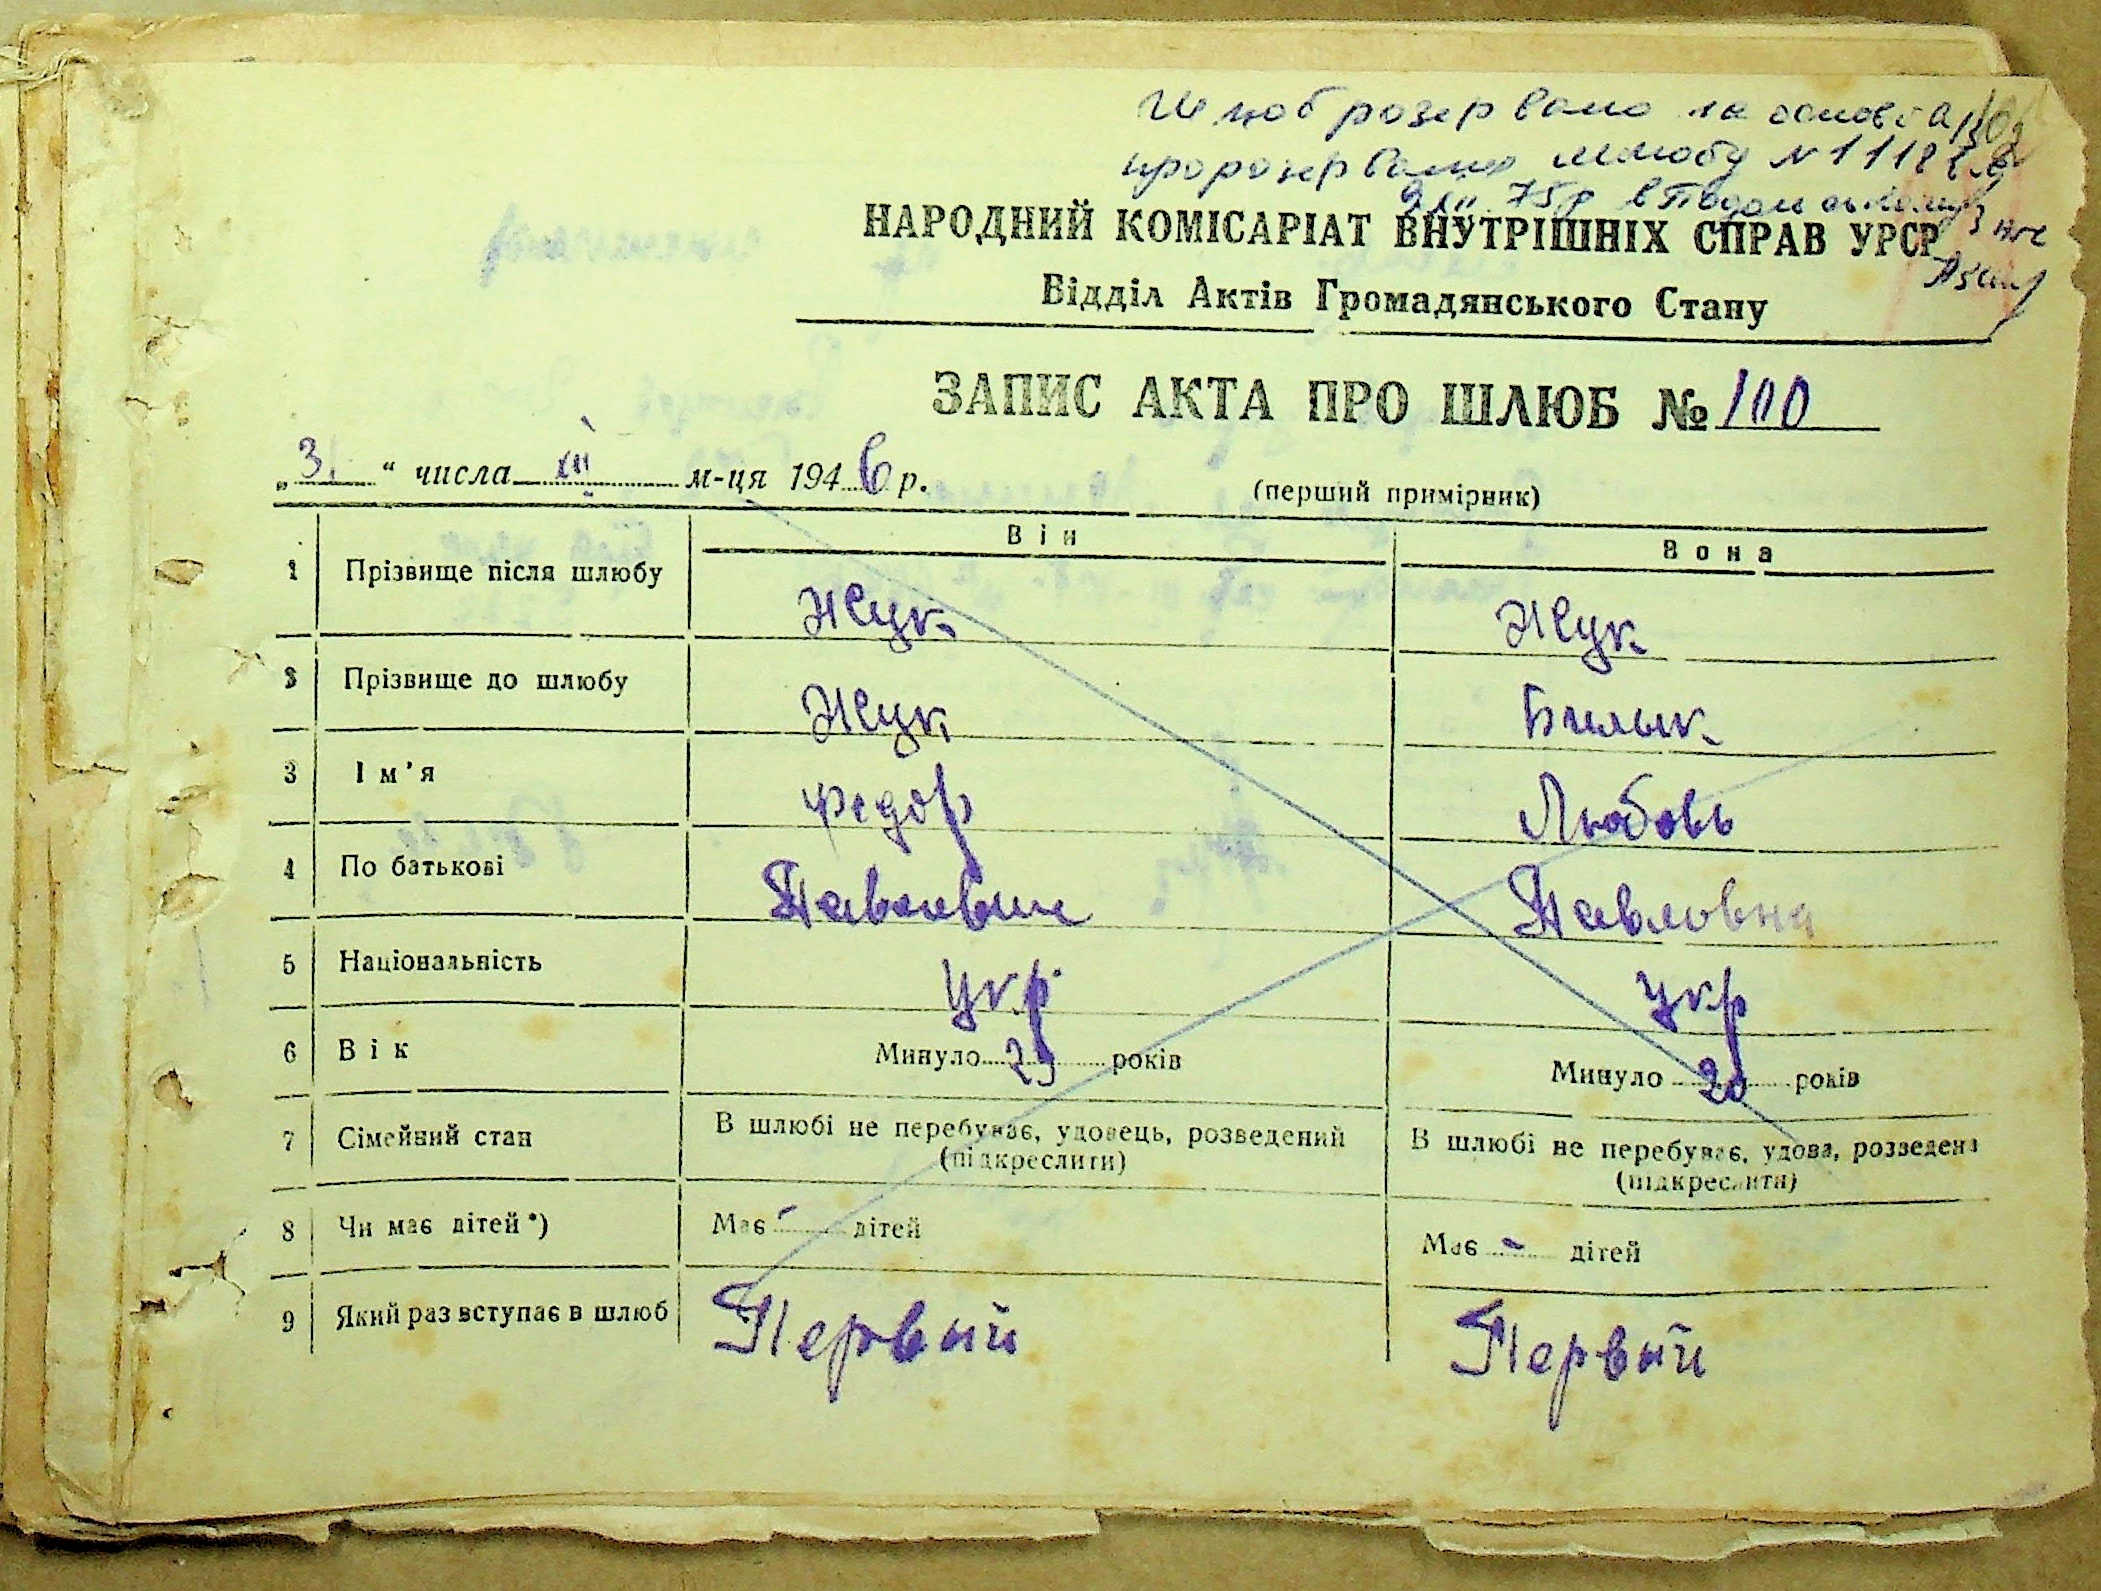 Шлюб розервано на основі а/з
про розерваню шлюбу N 1118
75р в Подольському
НАРОДНИЙ КОМІСАРІАТ ВНУТРІШНІХ СПРАВ УРСР
Відділ Актів Громадянського Стану
ЗАПИС АКТА ПРО ШЛЮБ № 100
„3." числа XII м-ця 1946 р.
(перший примірник)
Він Вона
1 Прізвище після шлюбу Жук Жук
2 Прізвище до шлюбу Жук Билык
3 Ім'я Федор Любовь
4 По батькові Павлович Павловна
5 Національність Укр. Укр
6 Вік Минуло 25 років Минуло 20 років
7 Сімейний стан В шлюбі не перебуває, удовець, розведений (підкреслити) В шлюбі не перебуває, удова, розведена (підкреслити)
8 Чи має дітей*) Має - дітей Має - дітей
9 Який раз вступає в шлюб Первый Первый